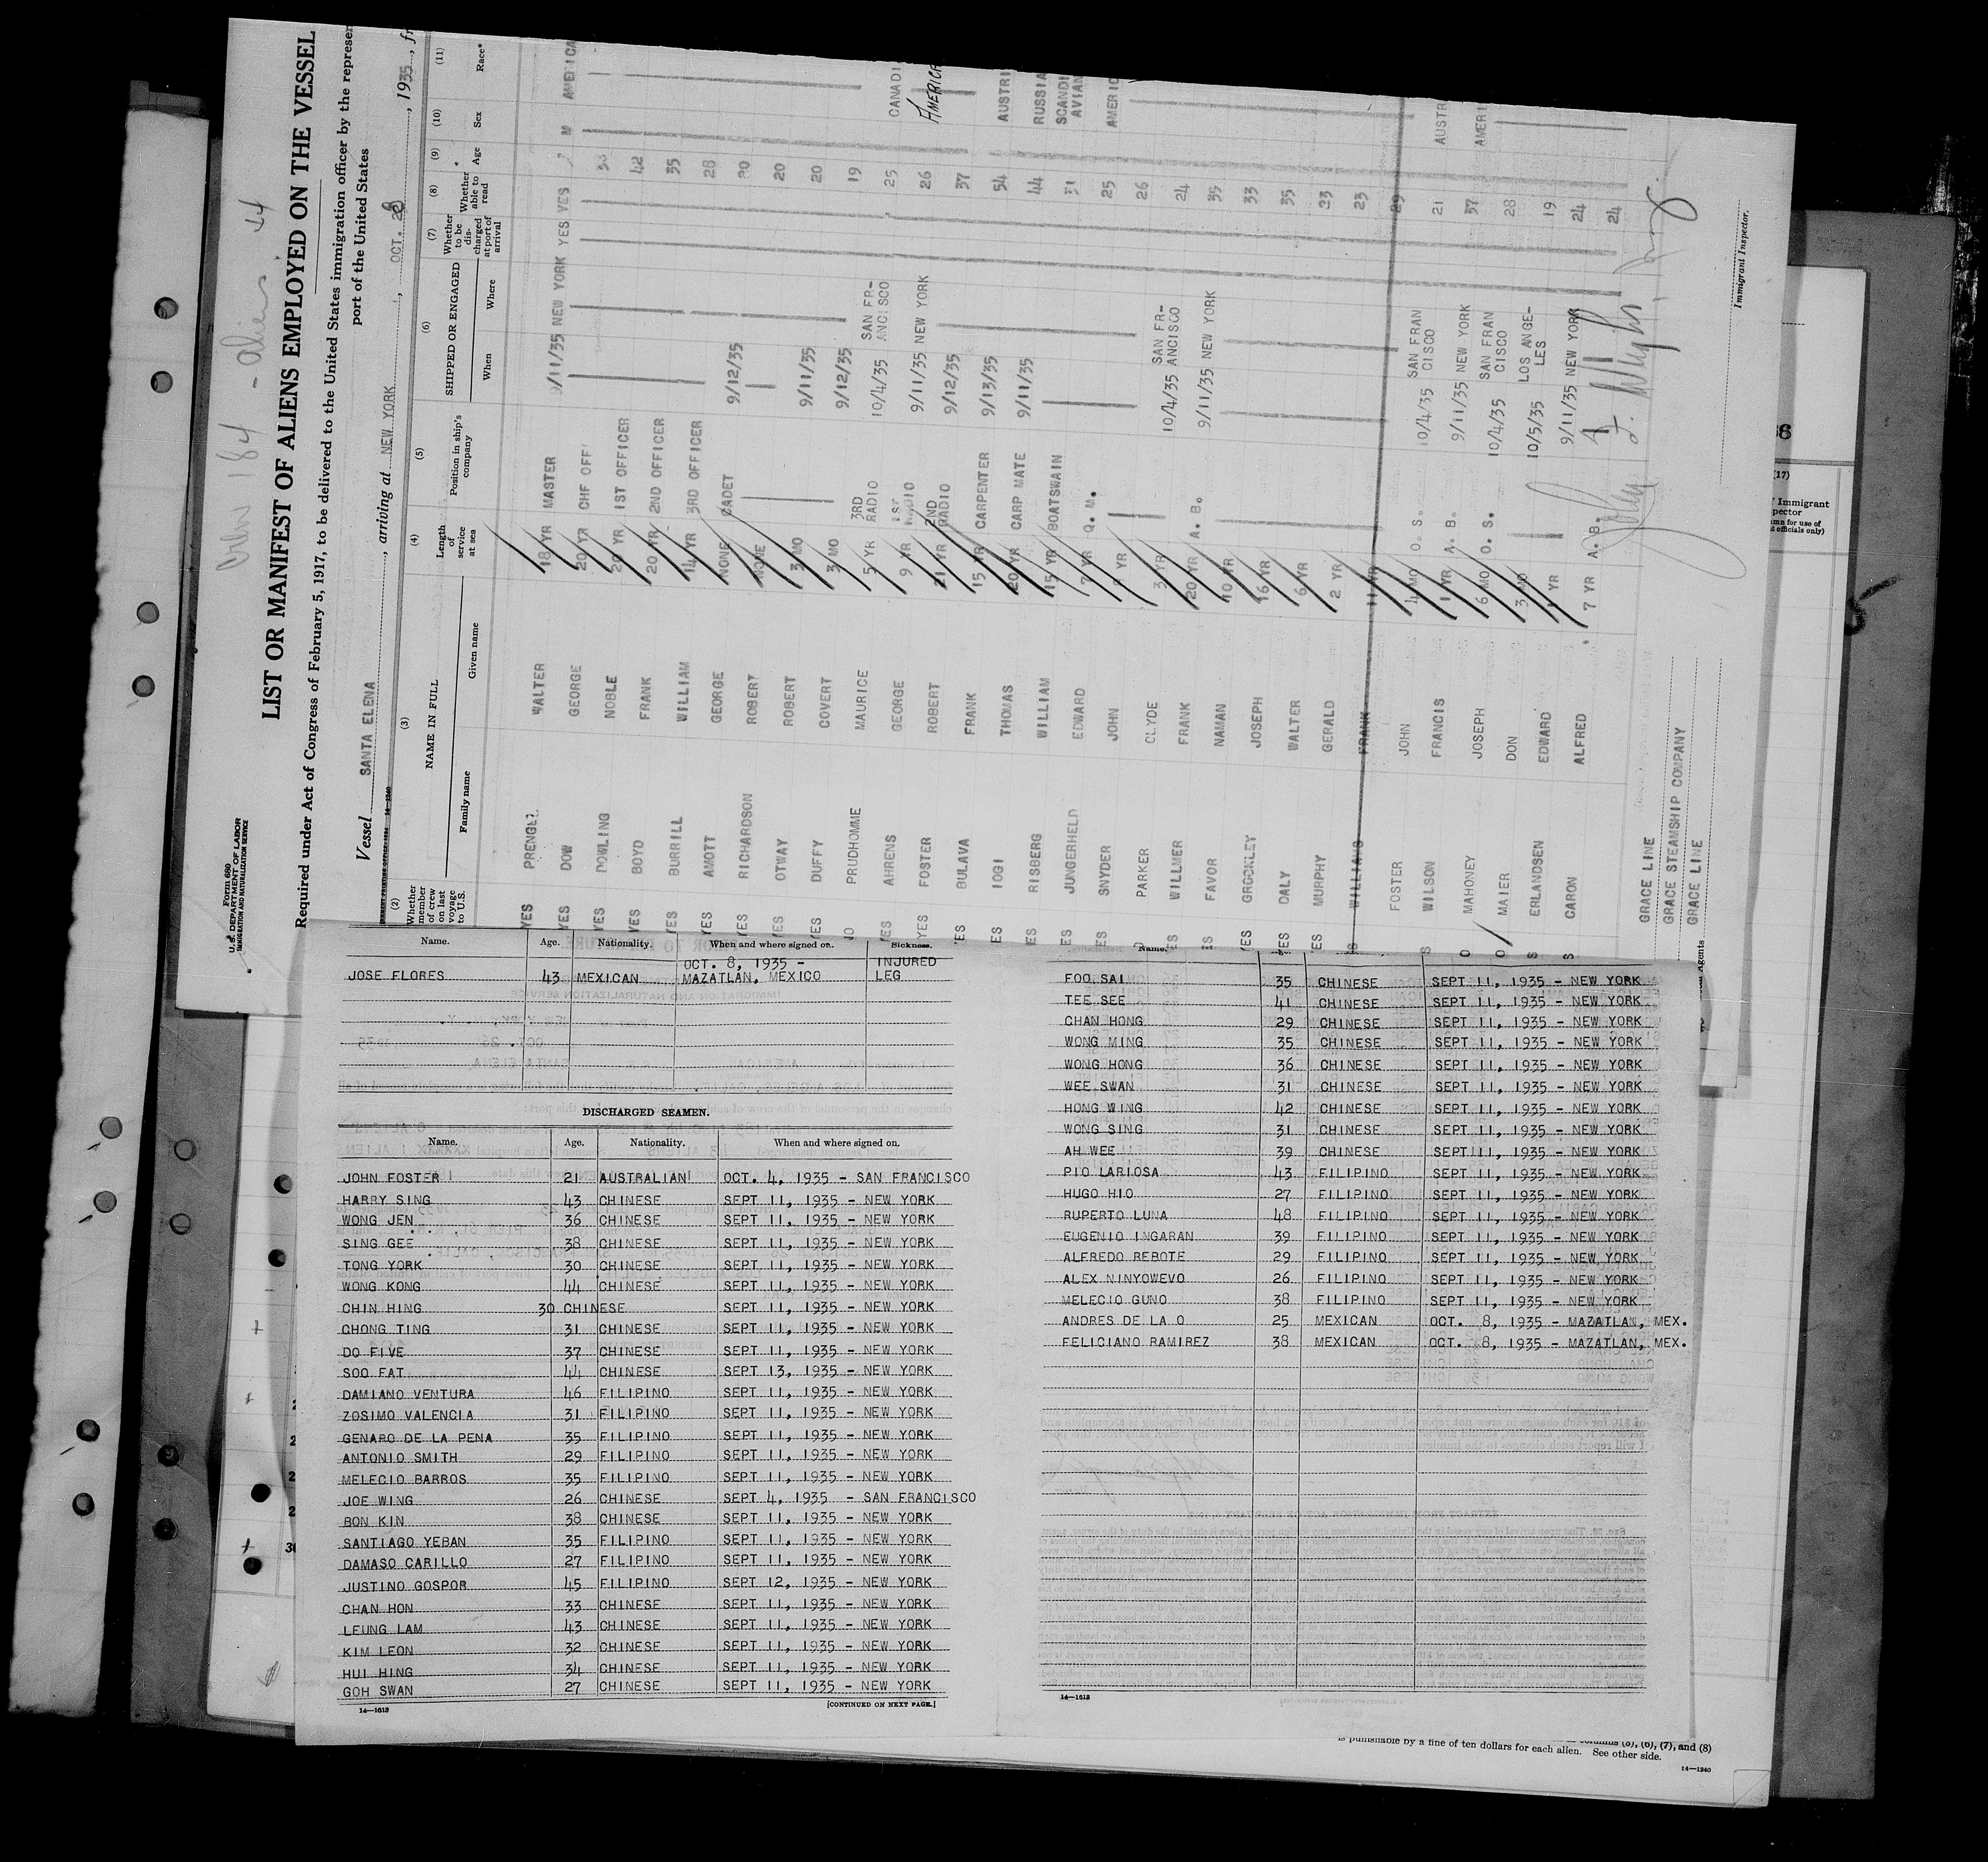 Crew 184 - aliens 44
Form 680
U.S. DEPARTMENT OF LABOR
IMMIGRATION AND NATURALIZATION SERVICE
LIST OR MANIFEST OF ALIENS EMPLOYED ON THE VESSEL
Required under Act of Congress of February 5, 1917, to be delivered to the United States immigration officer by the represen
port of the United States
Vessel SANTA ELENA, arriving at NEW YORK, OCT. 1935, fr
(2) (3) (4) (5) (6) (7) (8) (9) (10) (11)
Whether member of crew on last voyage to U.S. NAME IN FULL Length of service at sea Position in ship's company SHIPPED OR ENGAGED Whether to be discharged at port of arrival Whether able to read Age Sex Race*
Family name Given name When Where
YES WALTER 18 YR MASTER 9/11/35 NEW YORK YES YES M AMERICA
YES DOW GEORGE 20 YR CHF OFF
YES DOWLING NOBLE 20 YR 1ST OFFICER 42
YES BOYD FRANK 20 YR 2ND OFFICER 35
YES BURRILL WILLIAM 14 YR 3RD OFFICER 28
YES AMOTT GEORGE NONE CADET 9/12/35 20
YES RICHARDSON ROBERT NONE 20
YES OTWAY ROBERT 3 MO 9/11/35 20
YES DUFFY COVERT 3 MO 9/12/35 19
NO PRUDHOMME MAURICE 5 YR 3RD RADIO 10/4/35 SAN FR-ANCISCO 25 CANADI
YES AHRENS GEORGE 9 YR 1ST RADIO 9/11/35 NEW YORK 26 AMERICA
YES FOSTER ROBERT 21 YR 2ND RADIO 9/12/35 37
YES BULAVA FRANK 15 YR CARPENTER 9/13/35 54 AUSTRI
ES IOGI THOMAS 20 YR CARP MATE 9/11/35 44 RUSSIA
ES RISBERG WILLIAM 15 YR BOATSWAIN 31 SCANDI AVIAN
ES JUNGERHELD EDWARD 7 YR Q. M. 25 AMERIC
ES SNYDER JOHN YR 26
PARKER CLYDE 3 YR 10/4/35 SAN FR-ANCISCO 24
ES WILLMER FRANK 20 YR A. B. 9/11/35 NEW YORK 35
FAVOR NAMAN 10 YR 33
YES JOSEPH 16 YR 35
YES DALY WALTER 6 YR 23
ES MURPHY GERALD 2 YR 23
S WILLIAMS FRANK 11 YR 29
FOSTER JOHN 4 MO O. S. 10/4/35 SAN FRAN CISCO 21 AUSTR
S WILSON FRANCIS 1 YR A. B. 9/11/35 NEW YORK 37 AMERI
O MAHONEY JOSEPH 6 MO O. S. 10/4/35 SAN FRAN CISCO 28
O MAIER DON 3 MO 10/5/35 LOS ANGE-LES 19
S ERLANDSEN EDWARD 1 YR 24
S CARON ALFRED 7 YR A. B. 9/11/35 NEW YORK 24
GRACE LINE
GRACE STEAMSHIP COMPANY
GRACE LINE
Agents
Immigrant Inspector.
Name. Age. Nationality. When and where signed on. Sickness.
JOSE FLORES 43 MEXICAN OCT. 8, 1935 - MAZATLAN, MEXICO INJURED LEG
DISCHARGED SEAMEN.
Name. Age. Nationality. When and where signed on.
JOHN FOSTER 21 AUSTRALIAN OCT. 4, 1935 - SAN FRANCISCO
HARRY SING 43 CHINESE SEPT 11, 1935 - NEW YORK
WONG JEN 36 CHINESE SEPT 11, 1935 - NEW YORK
SING GEE 38 CHINESE SEPT 11, 1935 - NEW YORK
TONG YORK 30 CHINESE SEPT 11, 1935 - NEW YORK
WONG KONG 44 CHINESE SEPT 11, 1935 - NEW YORK
CHIN HING 30 CHINESE SEPT 11, 1935 - NEW YORK
CHONG TING 31 CHINESE SEPT 11, 1935 - NEW YORK
DO FIVE 37 CHINESE SEPT 11, 1935 - NEW YORK
SOO FAT 44 CHINESE SEPT 13, 1935 - NEW YORK
DAMIANO VENTURA 46 FILIPINO SEPT 11, 1935 - NEW YORK
ZOSIMO VALENCIA 31 FILIPINO SEPT 11, 1935 - NEW YORK
GENARO DE LA PENA 35 FILIPINO SEPT 11, 1935 - NEW YORK
ANTONIO SMITH 29 FILIPINO SEPT 11, 1935 - NEW YORK
MELECIO BARROS 35 FILIPINO SEPT 11, 1935 - NEW YORK
JOE WING 26 CHINESE SEPT 4, 1935 - SAN FRANCISCO
BON KIN 38 CHINESE SEPT 11, 1935 - NEW YORK
SANTIAGO YEBAN 35 FILIPINO SEPT 11, 1935 - NEW YORK
DAMASO CARILLO 27 FILIPINO SEPT 11, 1935 - NEW YORK
JUSTINO GOSPOR 45 FILIPINO SEPT 12, 1935 - NEW YORK
CHAN HON 33 CHINESE SEPT 11, 1935 - NEW YORK
LEUNG LAM 43 CHINESE SEPT 11, 1935 - NEW YORK
KIM LEON 32 CHINESE SEPT 11, 1935 - NEW YORK
HUI HING 34 CHINESE SEPT 11, 1935 - NEW YORK
GOH SWAN 27 CHINESE SEPT 11, 1935 - NEW YORK
14—1613 [CONTINUED ON NEXT PAGE.]
Name.
FOO SAI 35 CHINESE SEPT 11, 1935 - NEW YORK
TEE SEE 41 CHINESE SEPT 11, 1935 - NEW YORK
CHAN HONG 29 CHINESE SEPT 11, 1935 - NEW YORK
WONG MING 35 CHINESE SEPT 11, 1935 - NEW YORK
WONG HONG 36 CHINESE SEPT 11, 1935 - NEW YORK
WEE SWAN 31 CHINESE SEPT 11, 1935 - NEW YORK
HONG WING 42 CHINESE SEPT 11, 1935 - NEW YORK
WONG SING 31 CHINESE SEPT 11, 1935 - NEW YORK
AH WEE 39 CHINESE SEPT 11, 1935 - NEW YORK
PIO LARIOSA 43 FILIPINO SEPT 11, 1935 - NEW YORK
HUGO HIO 27 FILIPINO SEPT 11, 1935 - NEW YORK
RUPERTO LUNA 48 FILIPINO SEPT 11, 1935 - NEW YORK
EUGENIO INGARAN 39 FILIPINO SEPT 11, 1935 - NEW YORK
ALFREDO REBOTE 29 FILIPINO SEPT 11, 1935 - NEW YORK
ALEX NINYOWEVO 26 FILIPINO SEPT 11, 1935 - NEW YORK
MELECIO GUNO 38 FILIPINO SEPT 11, 1935 - NEW YORK
ANDRES DE LA O 25 MEXICAN OCT. 8, 1935 - MAZATLAN, MEX.
FELICIANO RAMIREZ 38 MEXICAN OCT. 8, 1935 - MAZATLAN, MEX.
14—1613
(17)
Immigrant
is punishable by a fine of ten dollars for each alien. See other side.
14—1240